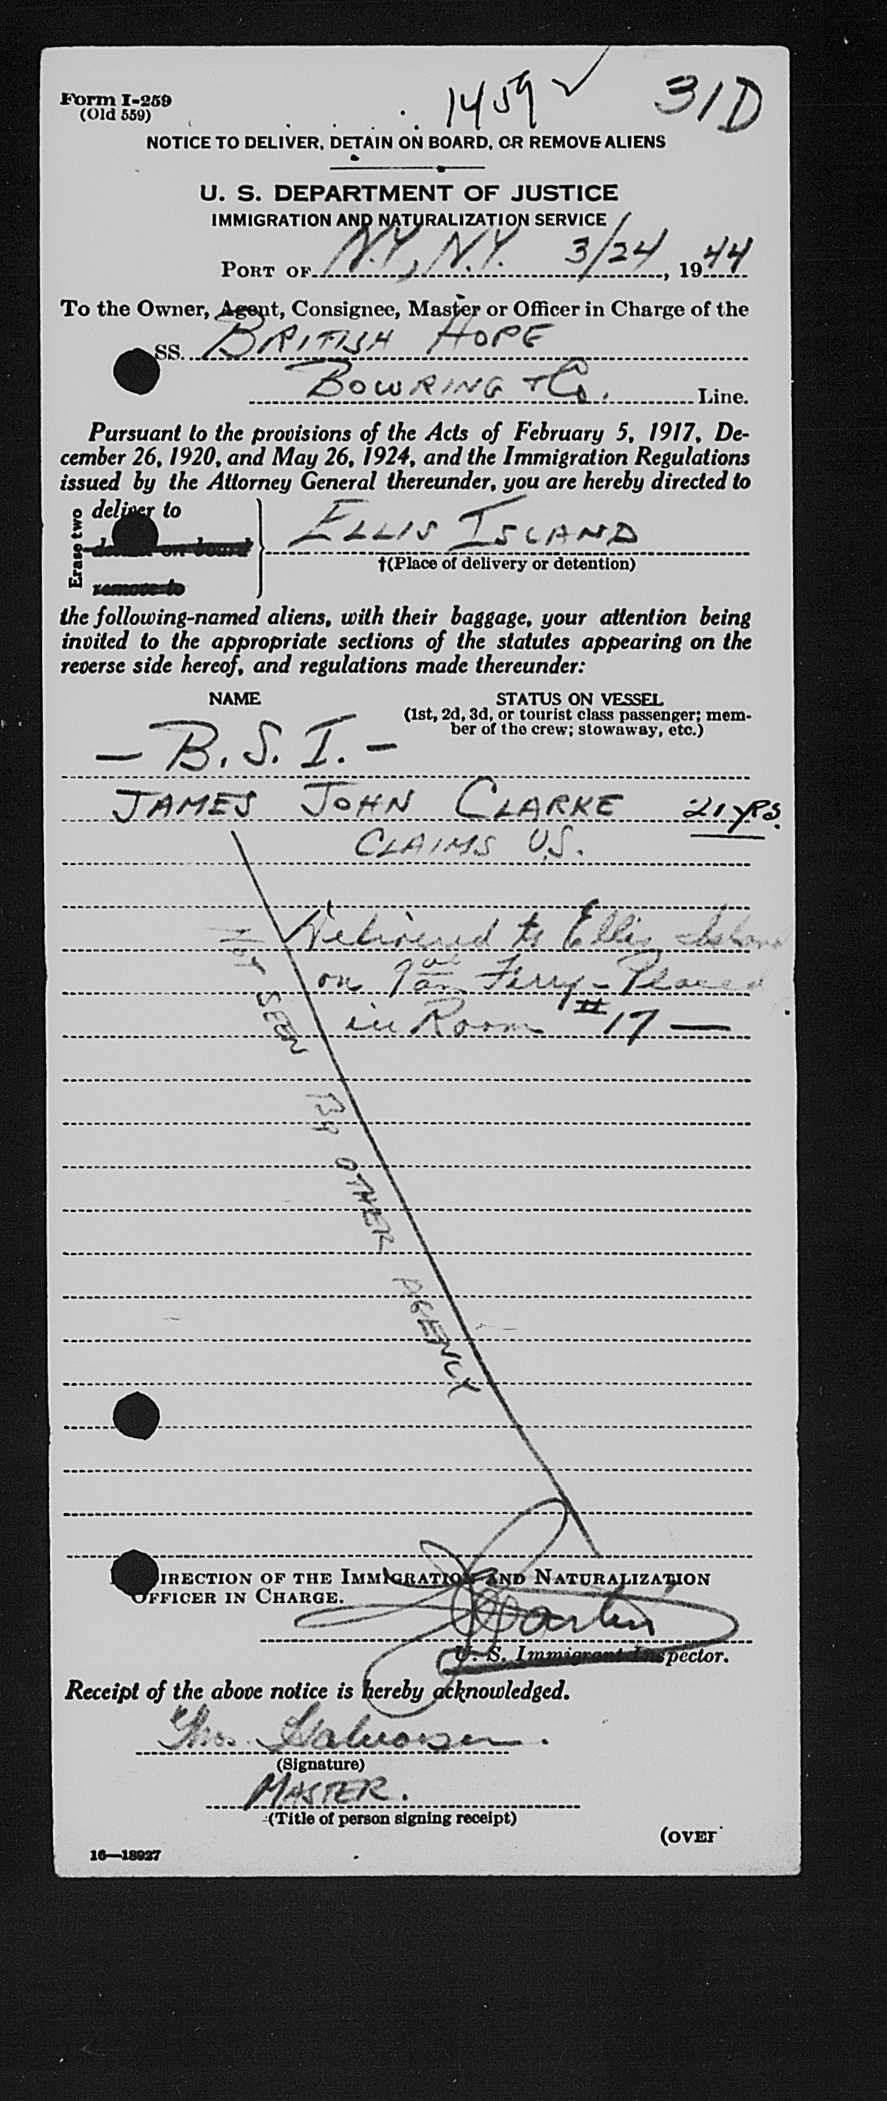 Form I-259
(Old 559)
1459 ✓
31D
NOTICE TO DELIVER, DETAIN ON BOARD, OR REMOVE ALIENS
U. S. DEPARTMENT OF JUSTICE
IMMIGRATION AND NATURALIZATION SERVICE
PORT OF N.Y., N.Y. 3/24, 1944
To the Owner, Agent, Consignee, Master or Officer in Charge of the
SS. BRITISH HOPE
BOWRING + Co. Line.
Pursuant to the provisions of the Acts of February 5, 1917, De-
cember 26, 1920, and May 26, 1924, and the Immigration Regulations
issued by the Attorney General thereunder, you are hereby directed to
Erase two
deliver to
detain on board
remove to
ELLIS ISLAND
†(Place of delivery or detention)
the following-named aliens, with their baggage, your attention being
invited to the appropriate sections of the statutes appearing on the
reverse side hereof, and regulations made thereunder:
NAME
STATUS ON VESSEL
(1st, 2d, 3d, or tourist class passenger; mem-
ber of the crew; stowaway, etc.)
— B. S. I. —
JAMES JOHN CLARKE 21 YRS.
CLAIMS U.S.
Delivered to Ellis Island
on 9 am Ferry - Placed
in Room #17 —
NOT SEEN BY OTHER AGENCY
DIRECTION OF THE IMMIGRATION AND NATURALIZATION
OFFICER IN CHARGE.
Martin
U. S. Immigrant Inspector.
Receipt of the above notice is hereby acknowledged.
Thos. Halvorsen.
(Signature)
MASTER.
(Title of person signing receipt)
(OVER
16—18927